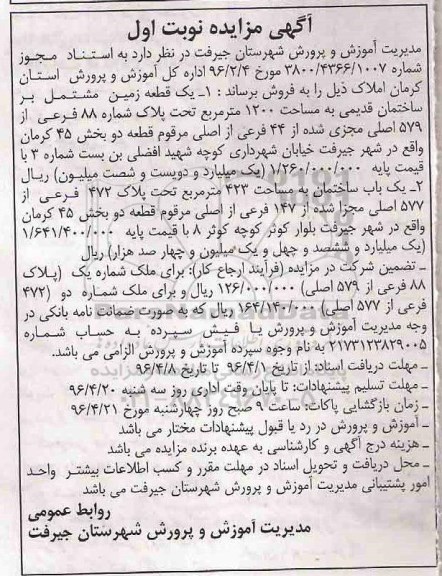 آگهی مزایده نوبت اول
مدیریت آموزش و پرورش شهرستان جیرفت در نظر دارد به استناد مجوز
شماره ۳۸۰۰/۴۳۶۶/۱۰۰۷ مورخ ۹۶/۲/۴ اداره کل آموزش و پرورش استان
کرمان املاک ذیل را به فروش برساند : ۱ـ یک قطعه زمین مشتمل بر
ساختمان قدیمی به مساحت ۱۲۰۰ مترمربع تحت پلاک شماره ۸۸ فرعی از
۵۷۹ اصلی مجزی شده از ۴۴ فرعی از اصلی مرقوم قطعه دو بخش ۴۵ کرمان
واقع در شهر جیرفت خیابان شهرداری کوچه شهید افضلی بن بست شماره ۳ با
قیمت پایه ۱/۲۶۰/۰۰۰/۰۰۰ (یک میلیارد و دویست و شصت میلیون) ریال
۲ـ یک باب ساختمان به مساحت ۴۲۳ مترمربع تحت پلاک ۴۷۲ فرعی از
۵۷۷ اصلی مجزا شده از ۱۴۷ فرعی از اصلی مرقوم قطعه دو بخش ۴۵ کرمان
واقع در شهر جیرفت بلوار کوثر کوچه کوثر ۸ با قیمت پایه ۱/۶۴۱/۴۰۰/۰۰۰
(یک میلیارد و ششصد و چهل و یک میلیون و چهار صد هزار) ریال
ـ تضمین شرکت در مزایده (فرآیند ارجاع کار): برای ملک شماره یک (پلاک
۸۸ فرعی از ۵۷۹ اصلی) ۱۲۶/۰۰۰/۰۰۰ ریال و برای ملک شماره دو (۴۷۲
فرعی از ۵۷۷ اصلی) ۱۶۴/۱۴۰/۰۰۰ ریال که به صورت ضمانت نامه بانکی در
وجه مدیریت آموزش و پرورش یا فیش سپرده به حساب شماره
۲۱۷۳۱۲۳۸۲۹۰۰۵ به نام وجوه سپرده آموزش و پرورش الزامی می باشد.
ـ مهلت دریافت اسناد: از تاریخ ۹۶/۴/۱ تا تاریخ ۹۶/۴/۸
ـ مهلت تسلیم پیشنهادات: تا پایان وقت اداری روز سه شنبه ۹۶/۴/۲۰
ـ زمان بازگشایی پاکات: ساعت ۹ صبح روز چهارشنبه مورخ ۹۶/۴/۲۱
ـ آموزش و پرورش در رد یا قبول پیشنهادات مختار می باشد
ـ هزینه درج آگهی و کارشناسی به عهده برنده مزایده می باشد
ـ محل دریافت و تحویل اسناد در مهلت مقرر و کسب اطلاعات بیشتر واحد
امور پشتیبانی مدیریت آموزش و پرورش شهرستان جیرفت می باشد
روابط عمومی
مدیریت آموزش و پرورش شهرستان جیرفت